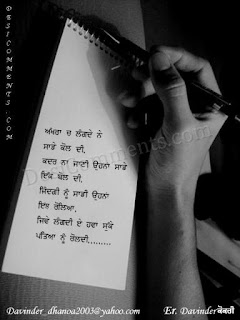 DESICOMMENTS.COM
ਅੱਖਰਾ ਚ ਲੱਗਦੇ ਨੇ
ਸਾਡੇ ਬੋਲ ਦੀ,
ਕਦਰ ਨਾ ਜਾਣੀ ਉਹਨਾ ਸਾਡੇ
ਇੱਕ ਬੋਲ ਦੀ,
ਜਿੰਦਗੀ ਨੂੰ ਸਾਡੀ ਉਹਨਾ
ਇਝ ਰੋਲਿਆ,
ਜਿਵੇ ਲੱਗਦੀ ਏ ਹਵਾ ਸੁੱਕੇ
ਪਤਿਆ ਨੂੰ ਰੋਲਦੀ.........
DesiComments.com
Davinder_dhanoa2003@yahoo.com
Er. Davinder ਕੋਬਰੀ